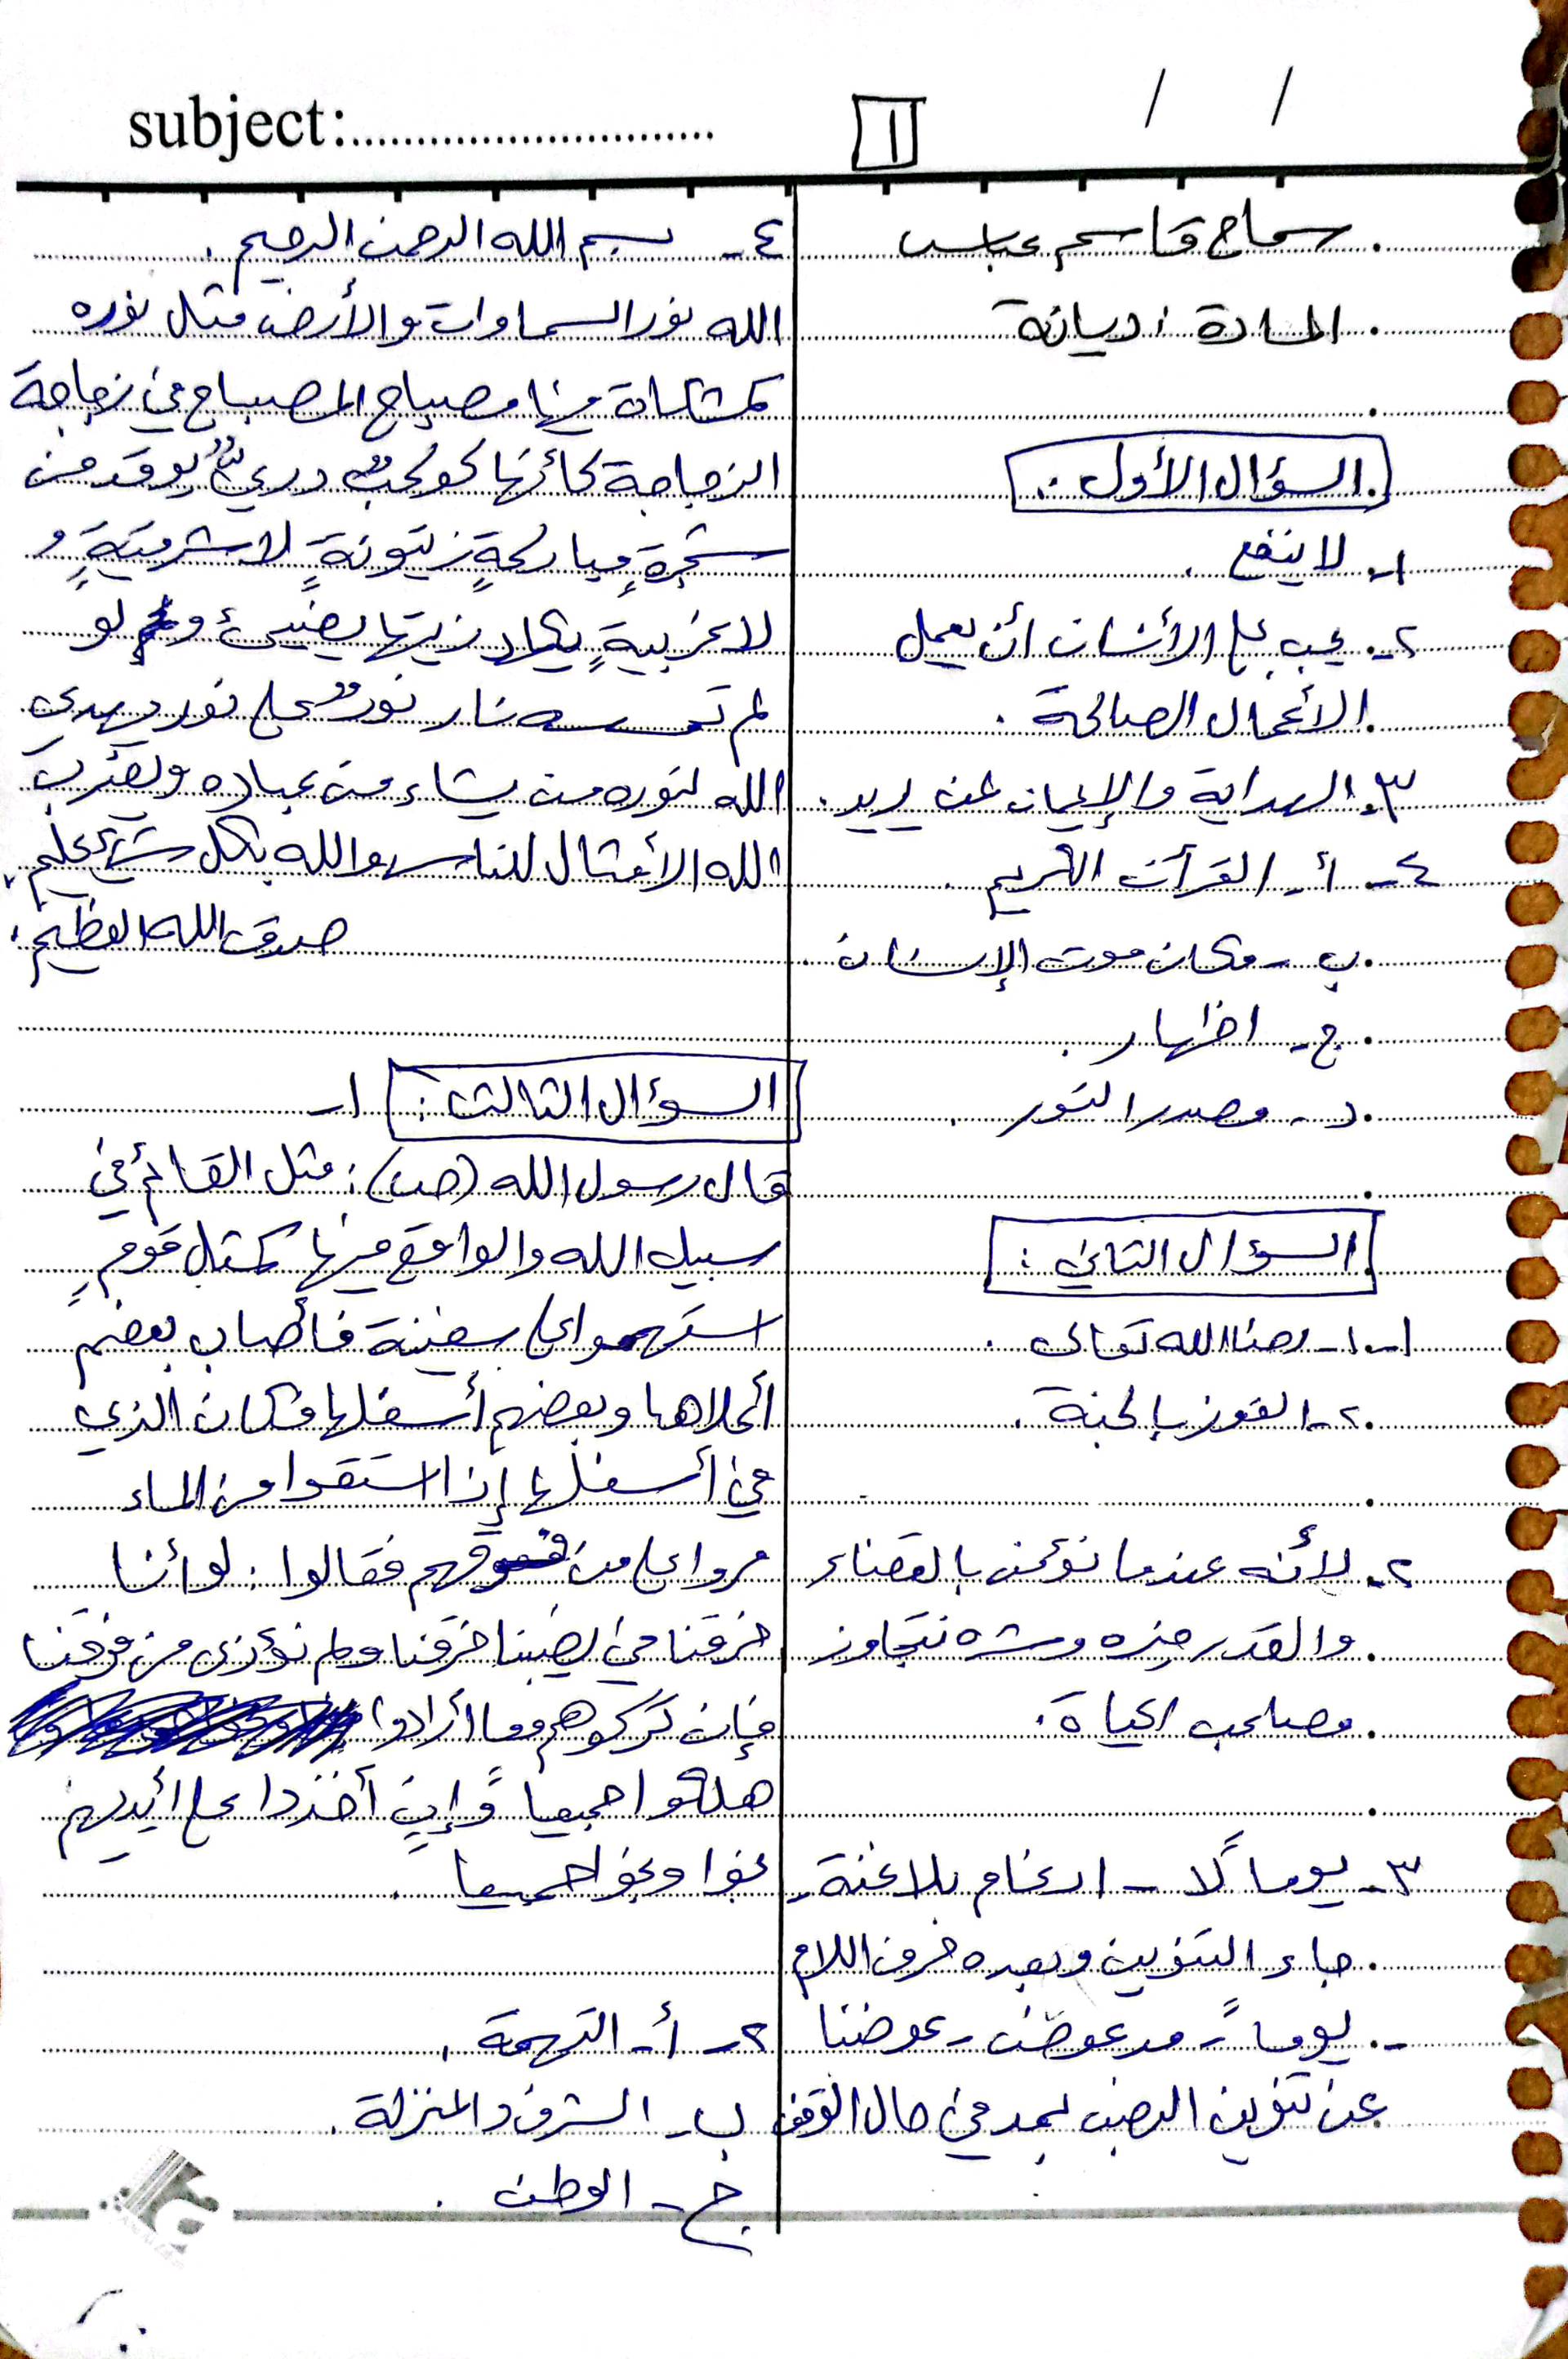 subject:..............................
1
/ /
سماح قاسم عباس
المادة : ديانة
السؤال الأول :
١- لا ينفع .
٢- يجب على الأنسان أن يعمل
الأعمال الصالحة .
٣- الهداية والإيمان لمن يريد .
٤- أ- القرآن الكريم .
ب - مكان موت الإنسان .
ج - اظهار .
د - مصدر النور .
السؤال الثاني :
١- ١- رضا الله تعالى .
٢- الفوز بالجنة .
٢- لأنه عندما نؤمن بالقضاء
والقدر خيره وشره نتجاوز
مصاعب الحياة .
٣- يوماً لا - ادغام بلا غنة
جاء التنوين وبعده حرف اللام
- يوماً - مد عوض - عوضنا
عن تنوين النصب بمد في حال الوقف
٤- بسم الله الرحمن الرحيم .
الله نور السماوات والأرض مثل نوره
كمشكاة فيها مصباح المصباح في زجاجة
الزجاجة كأنها كوكبٌ دريٌ يوقد من
شجرةٍ مباركةٍ زيتونةٍ لا شرقيةٍ و
لا غربيةٍ يكاد زيتها يضيئ ولو
لم تمسسه نار نورٌ على نور يهدي
الله لنوره من يشاء من عباده ويضرب
الله الأمثال للناس والله بكل شيء عليم .
صدق الله العظيم .
السؤال الثالث : ١-
قال رسول الله (ص) : مثل القائم في
سبيل الله والواقع فيها كمثل قومٍ
استهموا على سفينة فأصاب بعضهم
أعلاها وبعضهم أسفلها فكان الذي
في أسفلها إذا استقوا من الماء
مروا على من فوقهم فقالوا : لو أننا
خرقنا في نصيبنا خرقنا ولم نؤذى من فوقنا
فإن تركوهم وما أرادوا
هلكوا جميعاً وإن أخذوا على أيديهم
نجوا ونجوا جميعا .
٢- أ- التهمة .
ب- الشرف والمنزلة .
ج - الوطن .